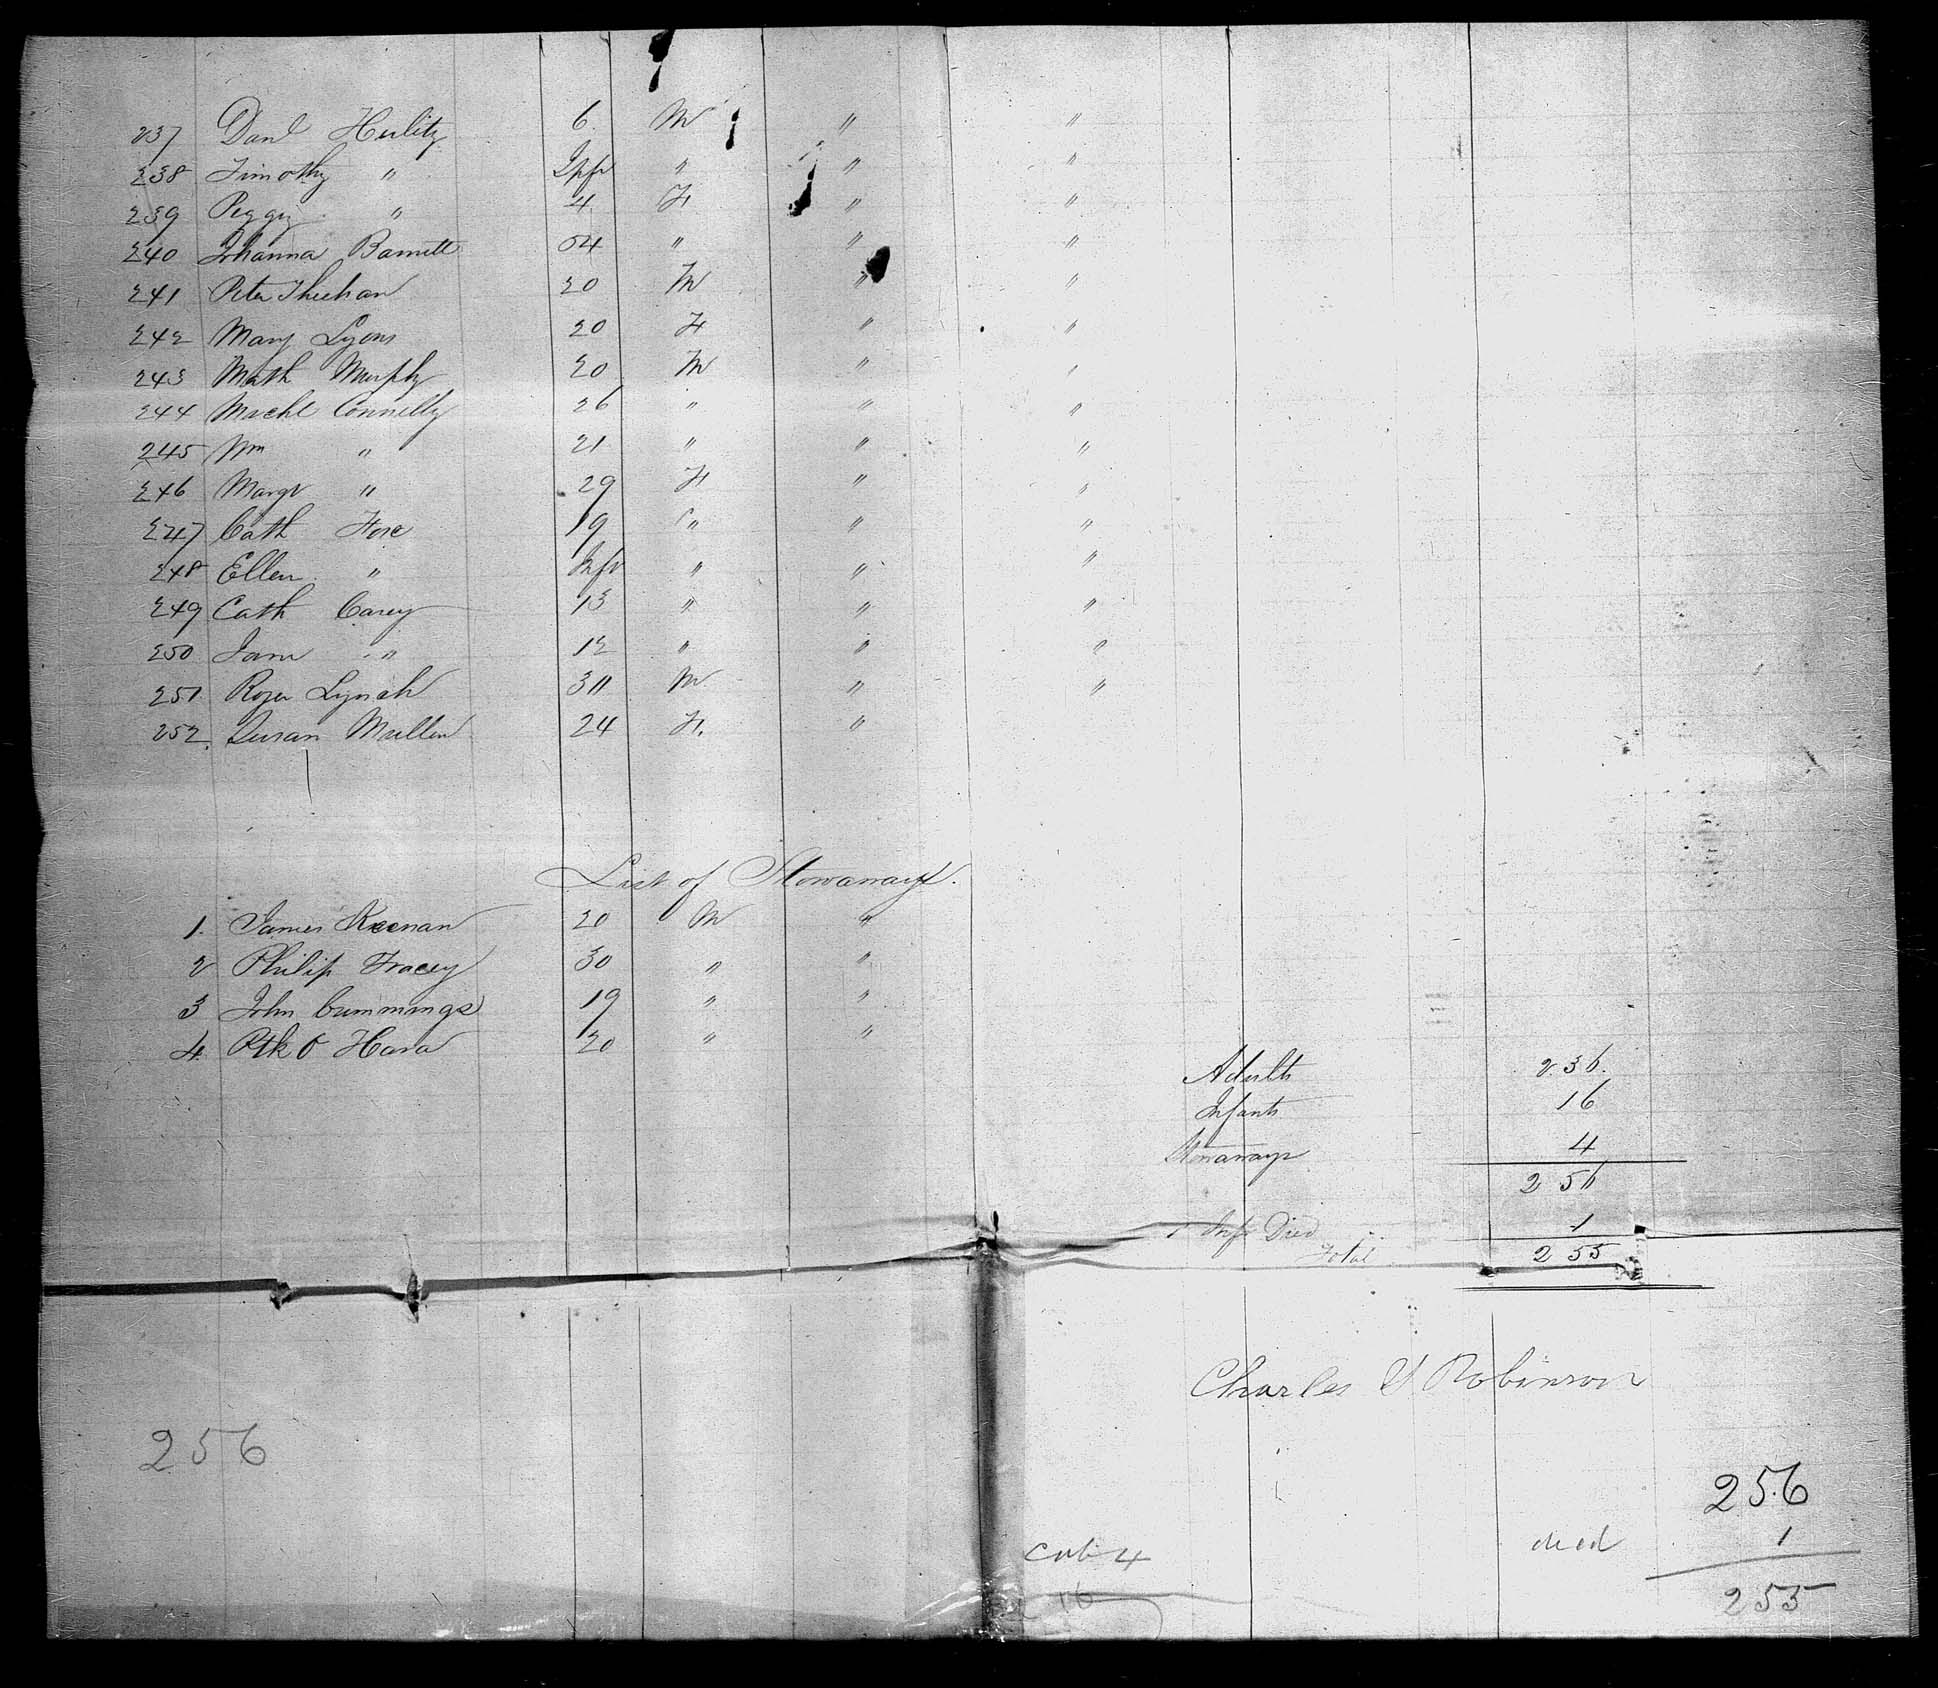 237 Danl Herlity 6 M " "
238 Timothy " Infr " " "
239 Peggy " 4 F " "
240 Johanna Barnett 54 " " "
241 Peter Sheehan 20 M " "
242 Mary Lyons 20 F " "
243 Math Murphy 20 M " "
244 Michl Connelly 26 " " "
245 Wm " 21 " " "
246 Margt " 29 F " "
247 Cath 19 " " "
248 Ellen " Infr " " "
249 Cath Carey 13 " " "
250 Jane " 12 " " "
251 Roger Lynch M " "
252. Susan Mullen 24 F. "
List of Stowaways.
1. James Keenan 20 M "
2 Philip Tracey 30 " "
3 John Cummings 19 " "
4. Ptk O Hara 20 " "
Adults 236.
Infants 16
Stowaways 4
256
1 Infr Died 1
Total 255
Charles Robinson
256
256
died 1
255
4
16